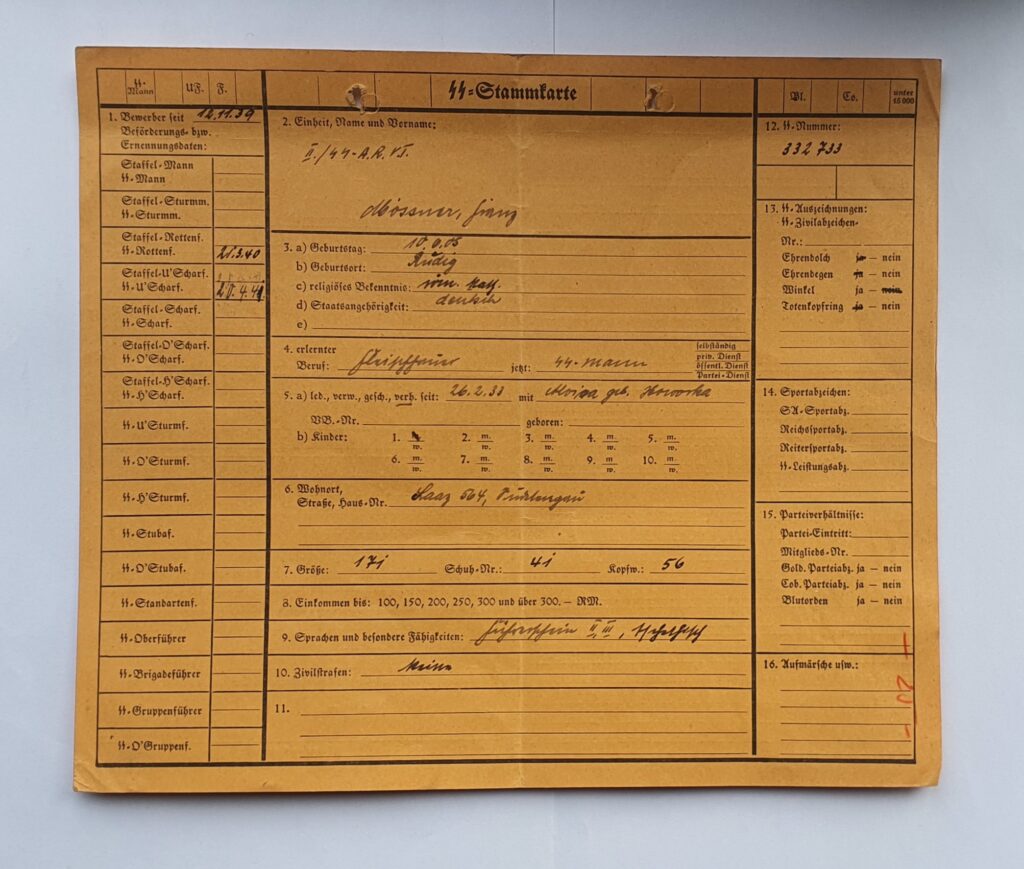 ᛋᛋ-Mann UF. F.
ᛋᛋ-Stammkarte
Bl. Co. unter 15000
1. Bewerber seit 12.11.39
Beförderungs- bzw.
Ernennungsdaten:
Staffel-Mann
ᛋᛋ-Mann
Staffel-Sturmm.
ᛋᛋ-Sturmm.
Staffel-Rottenf.
ᛋᛋ-Rottenf.
Staffel-U'Scharf.
ᛋᛋ-U'Scharf.
Staffel-Scharf.
ᛋᛋ-Scharf.
Staffel-O'Scharf.
ᛋᛋ-O'Scharf.
Staffel-H'Scharf.
ᛋᛋ-H'Scharf.
ᛋᛋ-U'Sturmf.
ᛋᛋ-O'Sturmf.
ᛋᛋ-H'Sturmf.
ᛋᛋ-Stubaf.
ᛋᛋ-O'Stubaf.
ᛋᛋ-Standartenf.
ᛋᛋ-Oberführer
ᛋᛋ-Brigadeführer
ᛋᛋ-Gruppenführer
ᛋᛋ-O'Gruppenf.
2. Einheit, Name und Vorname:
II./ᛋᛋ-A.R. V.T.
Mossner, Franz
3. a) Geburtstag:
b) Geburtsort: Rudig
c) religiöses Bekenntnis: röm. kath.
d) Staatsangehörigkeit: deutsch
e)
4. erlernter
Beruf: jetzt: ᛋᛋ-Mann
selbständig
priv. Dienst
öffentl. Dienst
Partei-Dienst
5. a) led., verw., gesch., verh. seit: 26.2.33 mit geb. Howorka
VB.-Nr. geboren:
b) Kinder: 1. 2. m. w. 3. m. w. 4. m. w. 5. m. w.
6. m. w. 7. m. w. 8. m. w. 9. m. w. 10. m. w.
6. Wohnort,
Straße, Haus-Nr. Saaz 564, Sudetengau
7. Größe: 171 Schuh-Nr.: 41 Kopfw.: 56
8. Einkommen bis: 100, 150, 200, 250, 300 und über 300.— RM.
9. Sprachen und besondere Fähigkeiten: Führerschein II, III, tschechisch
10. Zivilstrafen: keine
11.
12. ᛋᛋ-Nummer:
332 733
13. ᛋᛋ-Auszeichnungen:
ᛋᛋ-Zivilabzeichen-
Nr.:
Ehrendolch ja — nein
Ehrendegen ja — nein
Winkel ja — nein
Totenkopfring ja — nein
14. Sportabzeichen:
SA-Sportabz.
Reichsportabz.
Reitersportabz.
ᛋᛋ-Leistungsabz.
15. Parteiverhältnisse:
Partei-Eintritt:
Mitglieds-Nr.
Gold. Parteiabz. ja — nein
Cob. Parteiabz. ja — nein
Blutorden ja — nein
16. Aufmärsche usw.: